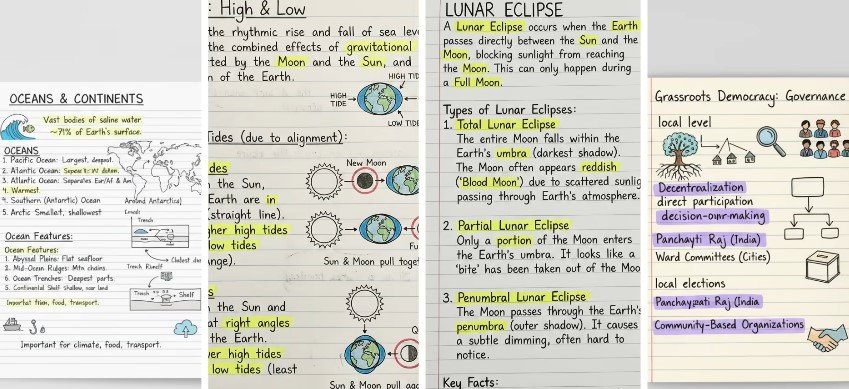 OCEANS & CONTINENTS
Vast bodies of saline water.
~71% of Earth's surface.
OCEANS
1. Pacific Ocean: Largest, deepest.
2. Atlantic Ocean:
3. Atlantic Ocean: Separates Eur/AF & Am
4. Warmest.
4. Southern (Antarctic) Ocean
Around Antarctica)
5. Arctic Smallest, shallowest
Trench
Ocean Features:
Ocean Features:
1. Abyssal Plains: Flat seafloor
2. Mid-Ocean Ridges: Mtn chains.
6. Ocean Trenches: Deepest parts.
5. Continental Shelf shallow, near land
Trench
Shelf
food, transport.
Important for climate, food, transport.
: High & Low
the rhythmic rise and fall of sea leve
the combined effects of gravitational
ted by the Moon and the Sun, and
n of the Earth.
HIGH TI
HIGH
TIDE
LOW TIDE
Tides (due to alignment):
des
New Moon
n the Sun,
Earth are in
(straight line).
gher high tides
low tides
nge).
Fu
Sun & Moon pull toget
s
n the Sun and
at right angles
the Earth.
wer high tides
low tides (least
Q
Sun & Moon pull aga
LUNAR ECLIPSE
A Lunar Eclipse occurs when the Earth
passes directly between the Sun and the
Moon, blocking sunlight from reaching
the Moon. This can only happen during
a Full Moon.
Types of Lunar Eclipses:
1. Total Lunar Eclipse
The entire Moon falls within the
Earth's umbra (darkest shadow).
The Moon often appears reddish
('Blood Moon') due to scattered sunlig
passing through Earth's atmosphere.
2. Partial Lunar Eclipse
Only a portion of the Moon enters
the Earth's umbra. It looks like a
'bite' has been taken out of the Moo
3. Penumbral Lunar Eclipse
The Moon passes through the Earth's
penumbra (outer shadow). It causes
a subtle dimming, often hard to
notice.
Key Facts:
Grassroots Democracy: Governance
local level
Decentroalization
direct participation
decision-oıнr-making
Panchayti Raj (India)
Ward Committees (Cities)
local elections
Panchayzati Raj (India
Community-Based Organizations